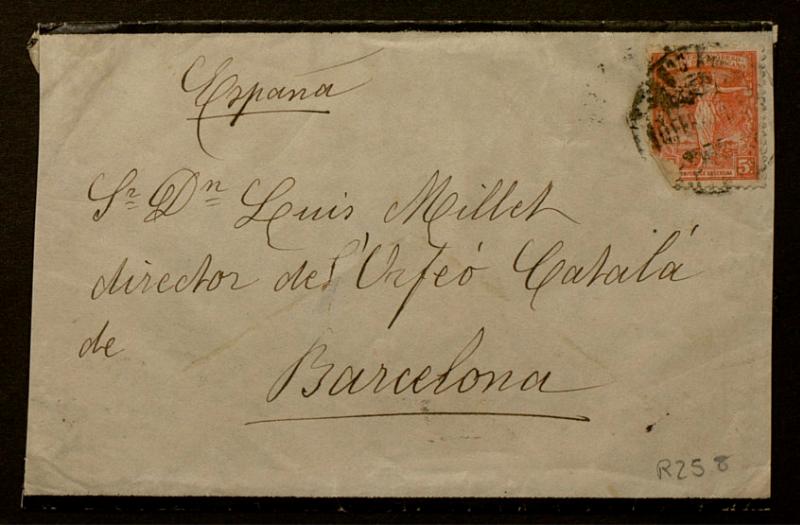 España
5c
Sr. Dn Luis Millet
director de l'Orfeó Catalá
de
Barcelona
R258